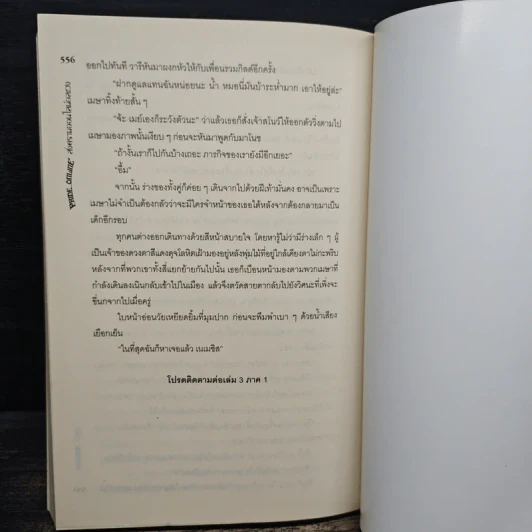 556
PRIDE ONLINE
ออกไปทันที วารีหันมาผงกหัวให้กับเพื่อนรวมกิลด์อีกครั้ง
"ฝากดูแลแทนฉันหน่อยนะ น้ำ หมอนี่มันบ้าระห่ำมาก เอาให้อยู่ล่ะ"
เมษาทิ้งท้ายสั้น ๆ
"จ้ะ เมย์เองก็ระวังตัวนะ" ว่าแล้วเธอก็สั่งเจ้าสโนว์ให้ออกตัววิ่งตามไป
เมษามองภาพนั้นเงียบ ๆ ก่อนจะหันมาพูดกับมาโนช
"ถ้างั้นเราก็ไปกันบ้างเถอะ ภารกิจของเรายังมีอีกเยอะ"
"อื้ม"
จากนั้น ร่างของทั้งคู่ก็ค่อย ๆ เดินจากไปด้วยฝีเท้ามั่นคง อาจเป็นเพราะ
เมษาไม่จำเป็นต้องกลัวว่าจะมีใครจำหน้าของเธอได้หลังจากต้องกลายมาเป็น
เด็กอีกรอบ
ทุกคนต่างออกเดินทางด้วยสีหน้าสบายใจ โดยหารู้ไม่ว่ามีร่างเล็ก ๆ ผู้
เป็นเจ้าของดวงตาสีแดงดุจโลหิตเฝ้ามองอยู่หลังพุ่มไม้ที่อยู่ใกล้เคียงตาไม่กะพริบ
หลังจากที่พวกเขาทั้งสี่แยกย้ายกันไปนั้น เธอก็เบือนหน้ามองตามพวกเมษาที่
กำลังเดินลงเนินกลับเข้าไปในเมือง แล้วจึงตวัดสายตากลับไปยังวิศนะที่เพิ่งจะ
ขี่นกจากไปเมื่อครู่
ใบหน้าอ่อนวัยเหยียดยิ้มที่มุมปาก ก่อนจะพึมพำเบา ๆ ด้วยน้ำเสียง
เยือกเย็น
"ในที่สุดฉันก็หาเจอแล้ว เนเมซิส"
โปรดติดตามต่อเล่ม 3 ภาค 1